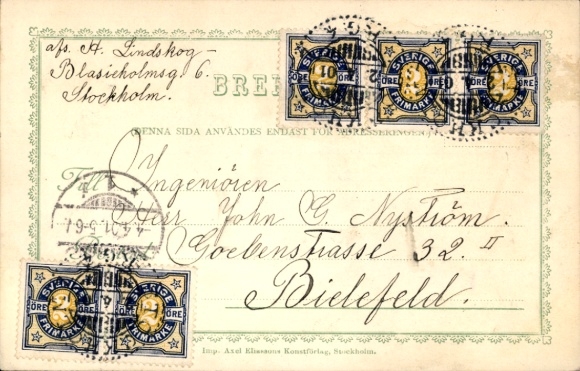 afs. A. Lindskog -
Blasieholmsg 6.
Stockholm.
BREF
(DENNA SIDA ANVÄNDES ENDAST FÖR ADRESSERINGEN)
SVERIGE
ÖRE ÖRE
FRIMÄRKE
SVERIGE
ÖRE ÖRE
FRIMÄRKE
SVERIGE
ÖRE ÖRE
FRIMÄRKE
Till
Yngeniören
Herr John G. Nyström.
Goebenstrasse 32 II
Bielefeld.
4.4.01.5-6
SVERIGE
ÖRE ÖRE
FRIMÄRKE
SVERIGE
ÖRE ÖRE
FRIMÄRKE
Imp. Axel Eliassons Konstförlag, Stockholm.